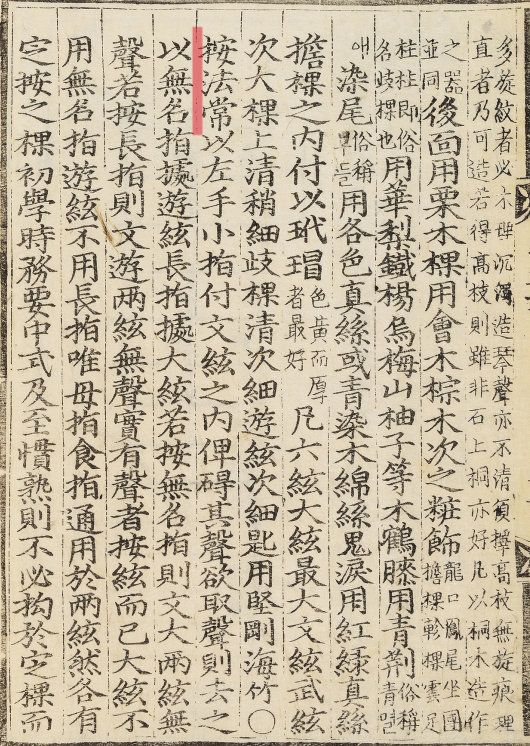 多旋紋者必不 沉濁造琴聲亦不清須擇高枝無旋痕理
直者乃可造若得高枝則雖非石上桐亦好凡以桐木造作
之器並同後面用栗木棵用會木椶木次之粧飾龍口鳳尾坐團擔棵軫棵雲足
桂柱即俗名歧棵也用華梨鐵楊烏梅山柚子等木鶴膝用青荆俗稱青멸
애染尾俗稱부들用各色真絲或青染木綿絲鬼淚用紅綠真絲
擔棵之內付以玳瑁色黃而厚者最好凡六絃大絃最大文絃武絃
次大棵上清稍細歧棵清次細遊絃次細匙用堅剛海竹○
按法常以左手小指付文絃之內俾碍其聲欲取聲則去之
以無名指據遊絃長指據大絃若按無名指則文大兩絃無
聲若按長指則文遊兩絃無聲實有聲者按絃而已大絃不
用無名指遊絃不用長指唯母指食指通用於兩絃然各有
定按之棵初學時務要中式及至慣熟則不必拘於定棵而